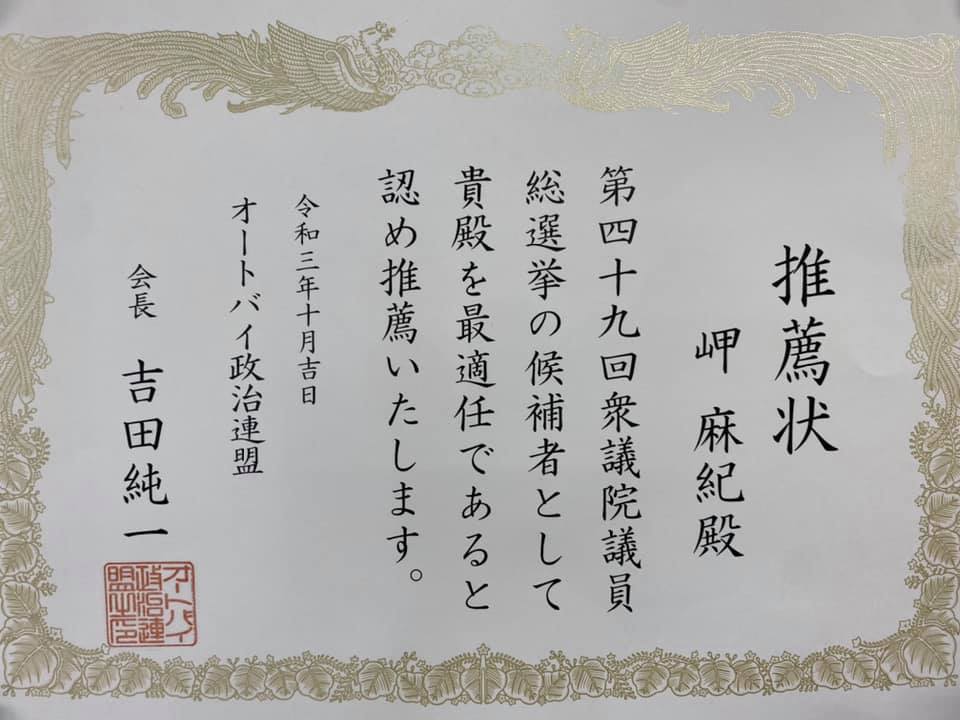 推薦状
岬 麻紀殿
第四十九回衆議院議員
総選挙の候補者として
貴殿を最適任であると
認め推薦いたします。
令和三年十月吉日
オートバイ政治連盟
会長 吉田純一
オートバイ
政治連
盟之印